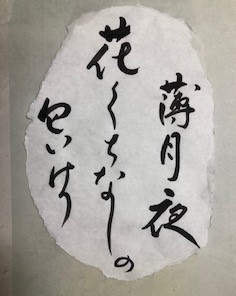 薄月夜
花くちなしの
匂いけり